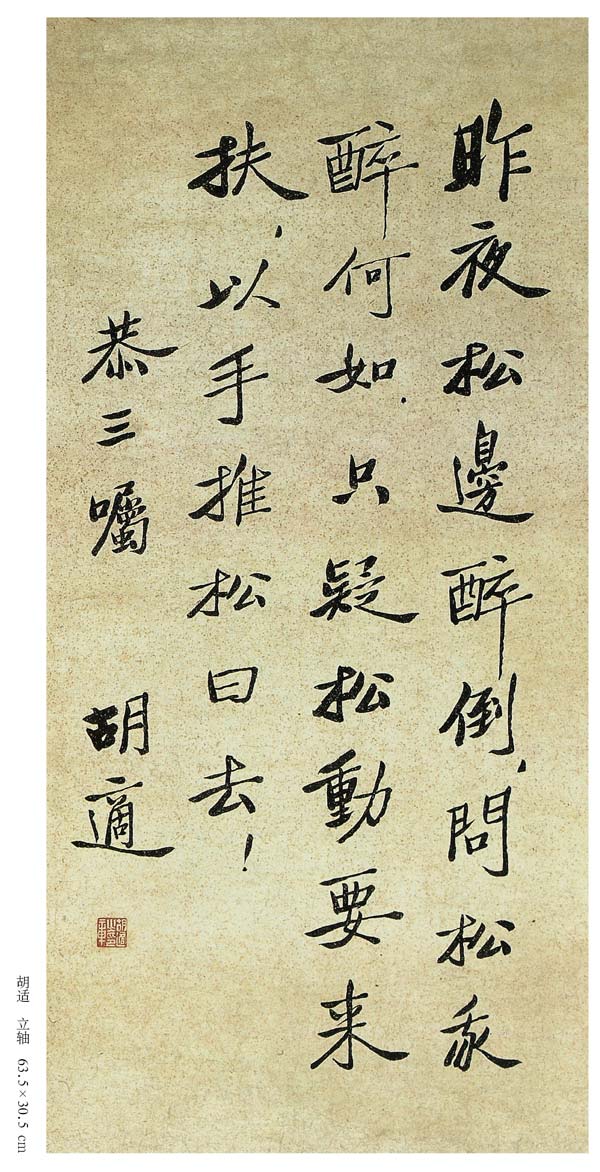 昨夜松邊醉倒，問松我
醉何如．只疑松動要来
扶，以手推松曰去！
恭三囑　胡適
胡适　立轴　63.5×30.5 cm